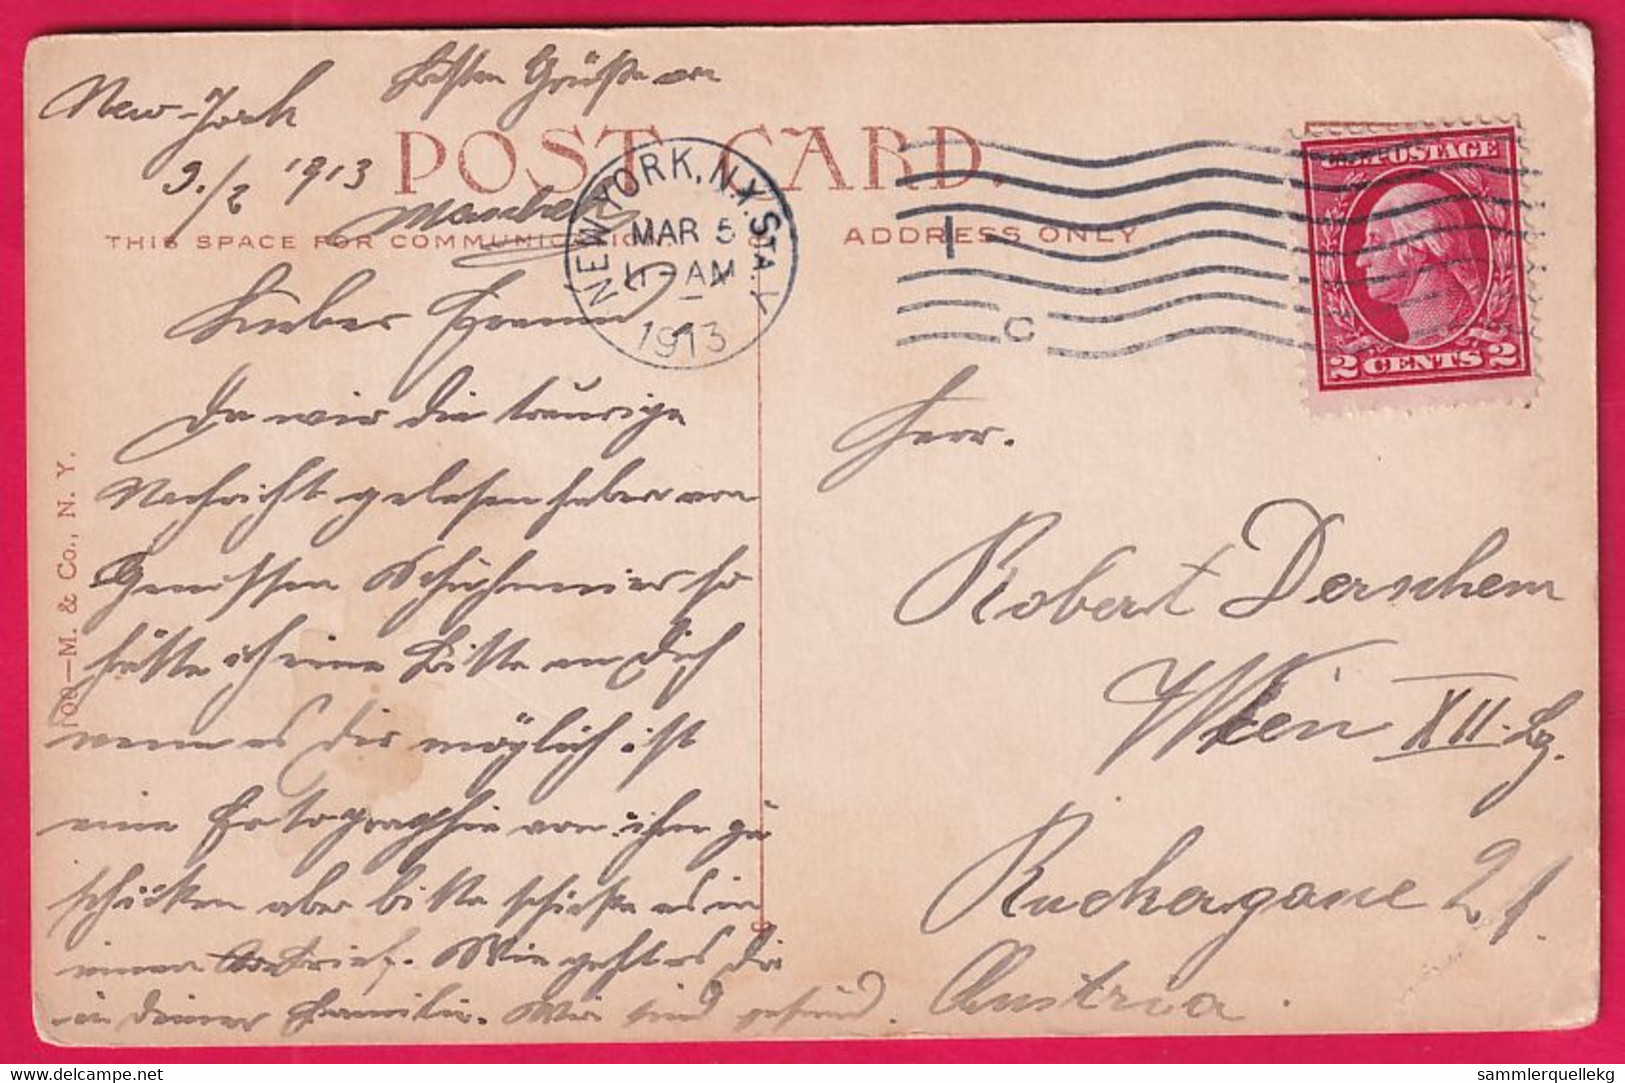 New-York
Besten Grüße an
3./2 1913
POST CARD.
THIS SPACE FOR COMMUNICATION
ADDRESS ONLY
NEW YORK, N.Y. STA. Y
MAR 5
11-AM
1913
C
U.S. POSTAGE
2 CENTS 2
100—M. & Co., N. Y.
Lieber Freund
Da wir die traurige
Nachricht gelesen haben von
Genossen Schuhmeier so
hätte ich eine Bitte an Dich
wenn es dir möglich ist
eine Fotographie von ihm zu
schicken aber bitte schicke es in
einen Brief. Wie geht es Dir
in deiner Familie. Wir sind gesund.
Herr.
Robert Derschem
Wien XII. Bz.
Ruckergasse 21.
Austria.
sammlerquellekg
www.delcampe.net